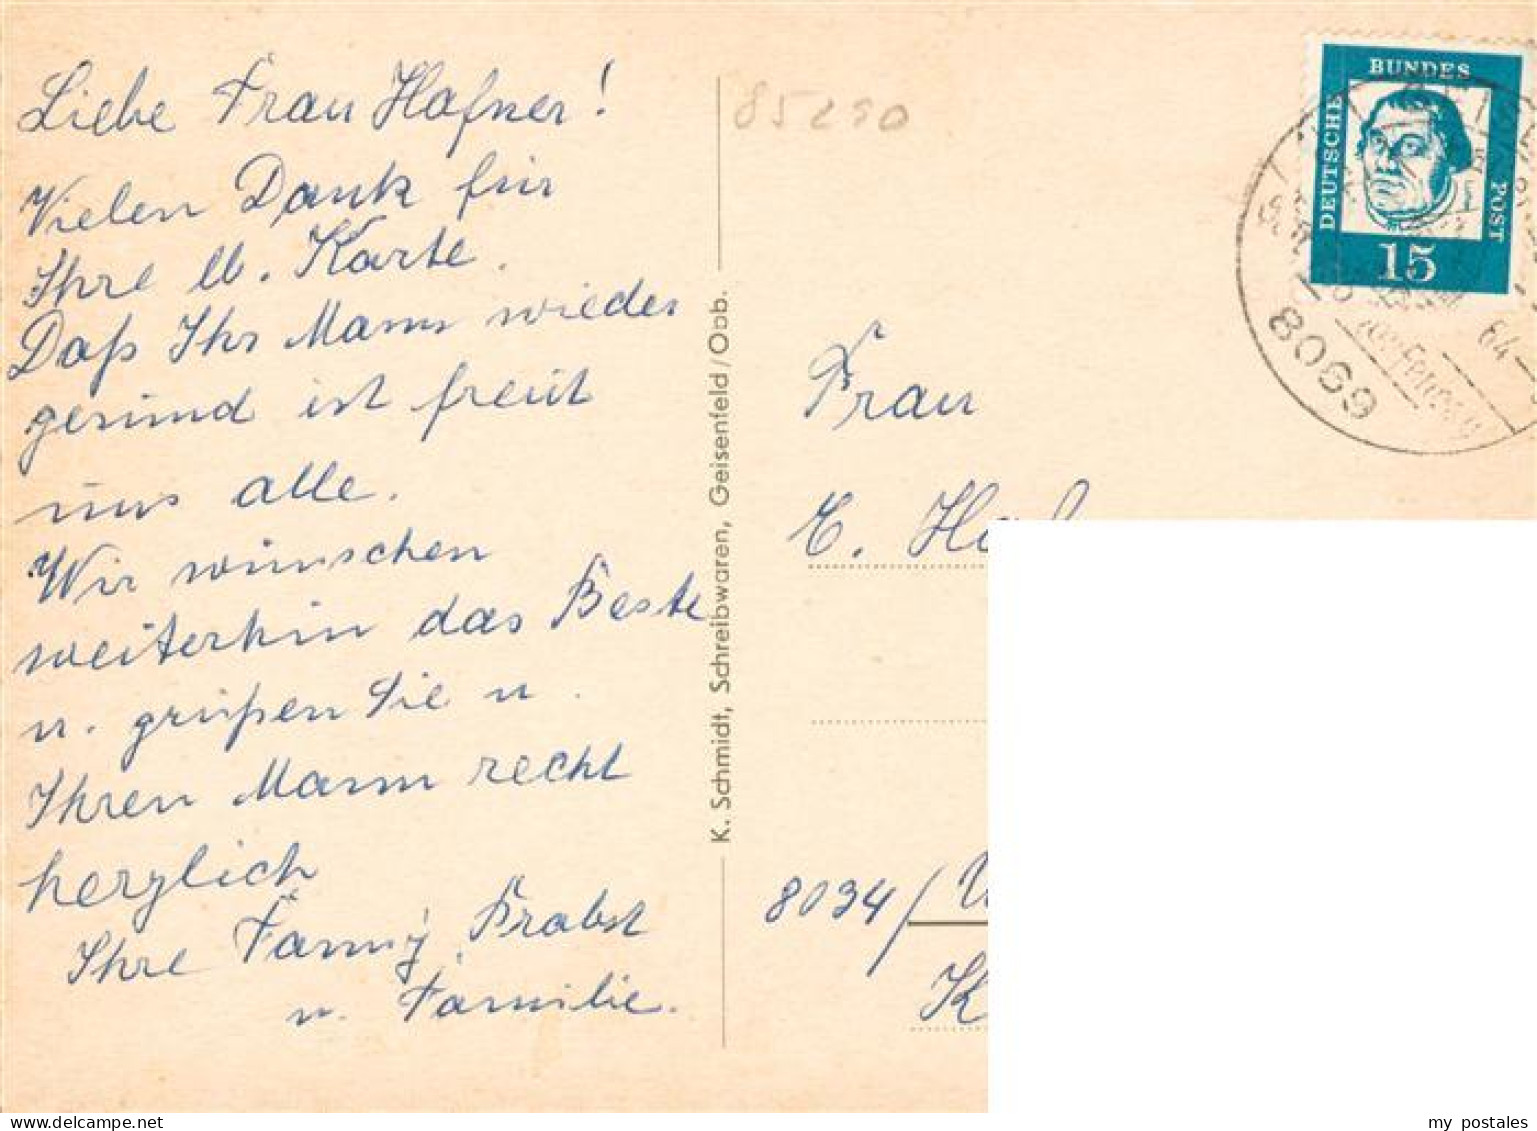 Liebe Frau Hafner!
Vielen Dank für
Ihre lb. Karte.
Daß Ihr Mann wieder
gesund ist freut
uns alle.
Wir wünschen
weiterhin das Beste
u. grüßen Sie u.
Ihren Mann recht
herzlich
Ihre Fanny Probst
u. Familie.
K. Schmidt, Schreibwaren, Geisenfeld/Obb.
85290
DEUTSCHE BUNDES POST
15
8069
64
Frau
E.
8034/
my postales